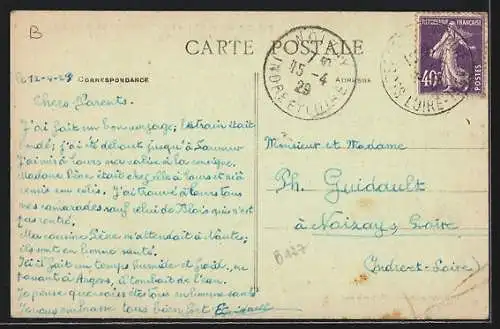 B
CARTE POSTALE
CORRESPONDANCE
ADRESSE
12-4-29
Chers Parents.
J'ai fait un bon voyage; le train était
bondé; j'ai été debout jusqu'à Saumur
J'ai mis à Tours ma valise à la consigne.
Madame Pène était chez elle à Tours et m'a
remis un colis. J'ai trouvé à Tours tous
mes camarades sauf celui de Blois qui n'est
pas rentré.
Ma cousine Pène m'attendait à Nantes;
ils sont en bonne santé.
Ici il fait un temps humide et froid, en
passant à Angers, il tombait de l'eau.
Je pense que vous êtes tous en bonne santé
Je vous embrasse tous bien fort
Monsieur et Madame
Ph. Guidault
à Noizay s Loire
(Indre-et-Loire)
B137
NOIZAY
15-4
29
INDRE ET LOIRE
RÉPUBLIQUE FRANÇAISE
40c
POSTES